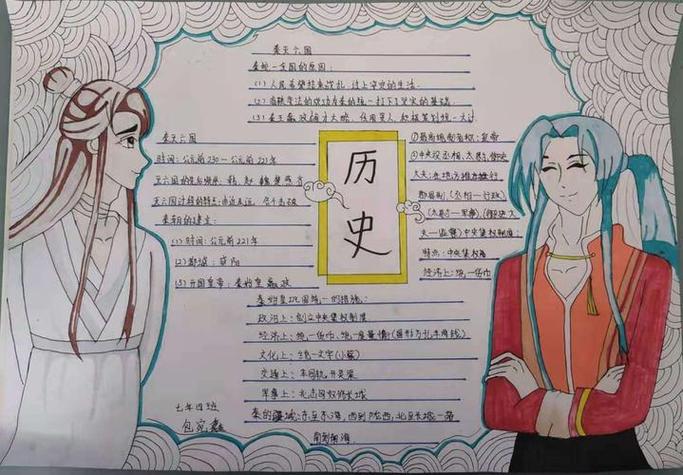 秦灭六国
秦统一六国的原因：
(1) 人民希望结束战乱，过上安定的生活.
(2) 商鞅变法的成功为秦的统一打下了坚实的基础.
(3) 秦王嬴政雄才大略，任用贤人，积极策划统一大计
秦灭六国
时间：公元前230—公元前221年
灭六国的先后顺序：韩 赵 魏 楚 燕 齐
灭六国过程的特点：由近及远，各个击破
秦朝的建立：
(1) 时间：公元前221年
(2) 都城：咸阳
(3) 开国皇帝：秦始皇 嬴政
历史
①最高统制者称：皇帝
②中央设丞相、太尉、御史
大夫；在地方推行
郡县制. (丞相—行政)
(太尉—军事) (御史大
夫—监察) 中央集权制度：
特点：中央集权
经济上：统一货币
秦始皇巩固统一的措施：
政治上：创立中央集权制度
经济上：统一货币，统一度量衡 (圆形方孔半两钱)
文化上：统一文字(小篆)
交通上：车同轨，开灵渠
军事上：北击匈奴修长城
秦的疆域：东至东海，西到陇西，北至长城一带
南到南海.
七年四班
包宛鑫